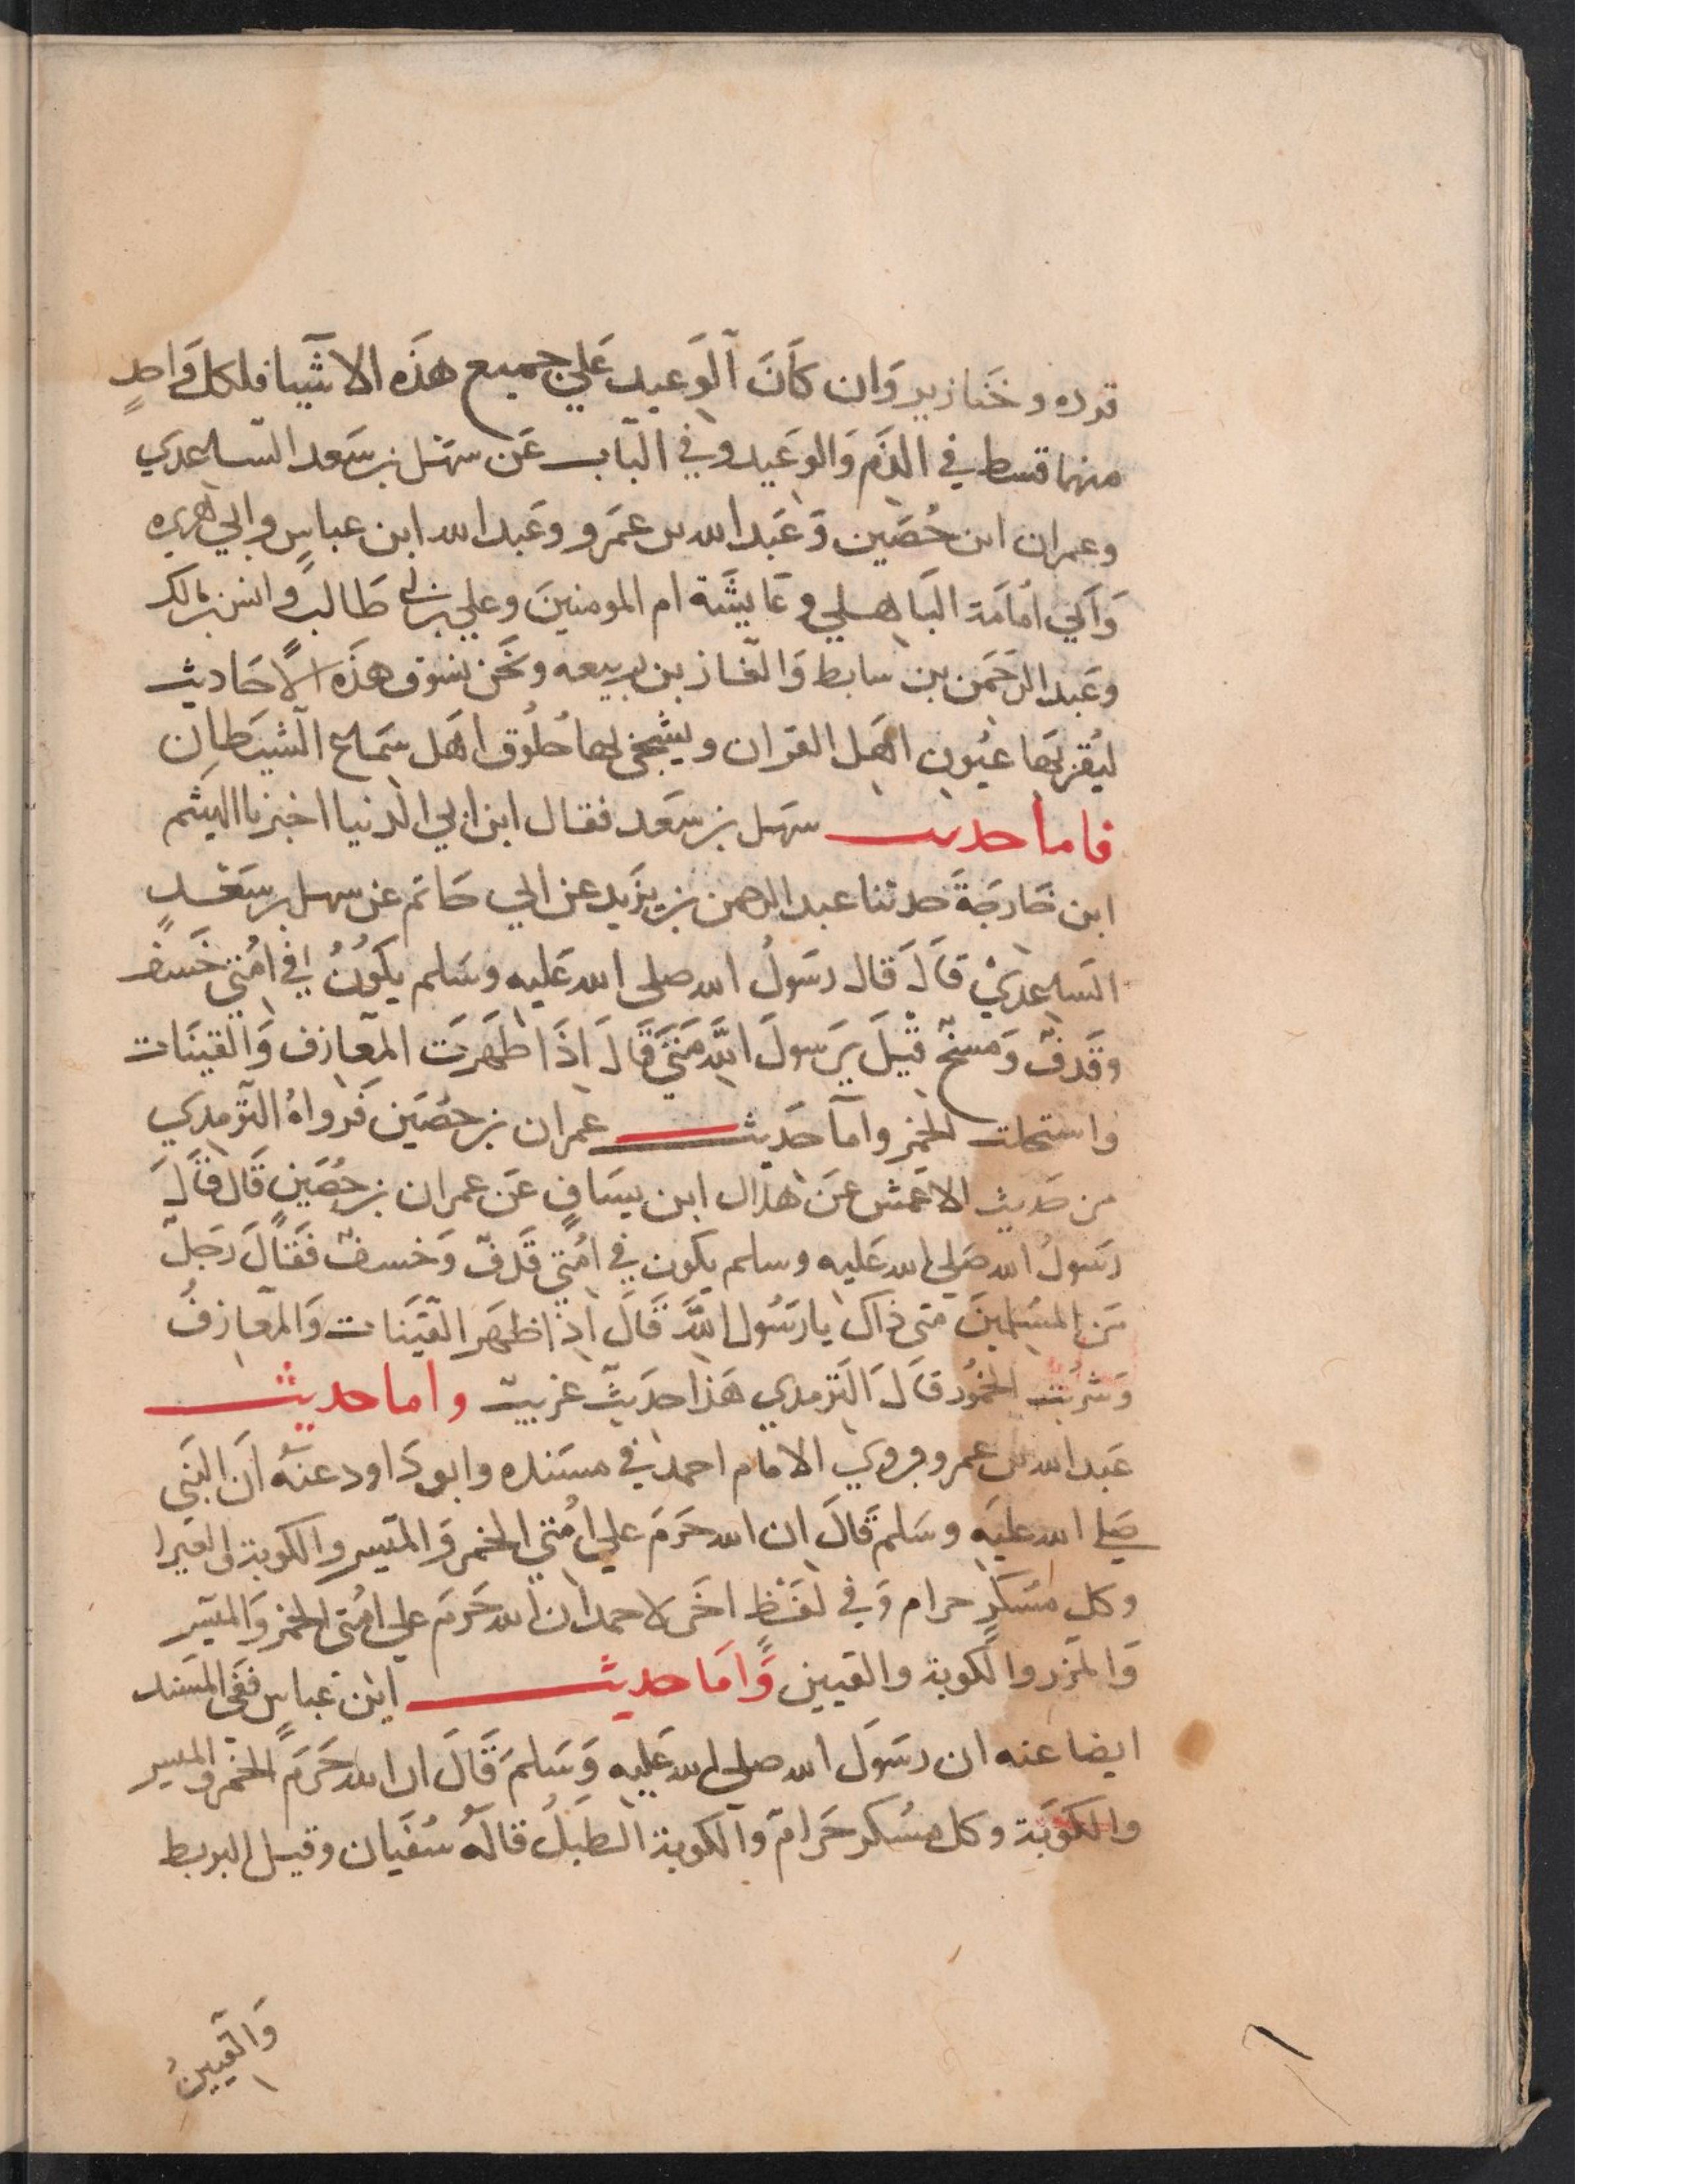 قرده وخنازير وان كان الوعيد علي جميع هذه الاشيا فلكل واحد
منها قسط في الذم والوعيد وفي الباب عن سهل بن سعد الساعدي
وعمران ابن حصين وعبد الله بن عمرو وعبد الله ابن عباس وابي هريره
وابي امامة الباهلي وعايشة ام المومنين وعلي بن ابي طالب وانس بن مالك
وعبد الرحمن بن سابط والغاز بن ربيعه ونحن نسوق هذه الاحاديث
ليقر بها عيون اهل القران ويشجي بها حلوق اهل سماع الشيطان
فاما حديث سهل بن سعد فقال ابن ابي الدنيا اخبرنا الهيثم
ابن خارجة حدثنا عبد الرحمن بن يزيد عن ابي حاتم عن سهل بن سعد
الساعدي قال قال رسول الله صلى الله عليه وسلم يكون في امتي خسف
وقذف ومسخ قيل يرسول الله متي قال اذا ظهرت المعازف والقينات
واستحلت الخمر واما حديث عمران بن حصين فرواه الترمدي
من حديث الاعمش عن هلال ابن يساف عن عمران بن حصين قال قال
رسول الله صلي الله عليه وسلم يكون في امتي قذف وخسف فقال رجل
من المسلمين متى ذاك يا رسول الله قال اذا ظهر القينات والمعازف
وشربت الخمور قال الترمدي هذا حديث غريب واما حديث
عبد الله بن عمرو فروي الامام احمد في مسنده وابو داود عنه ان النبي
صلي الله عليه وسلم قال ان الله حرم علي امتي الخمر والميسر والكوبة والغبيرا
وكل مسكر حرام وفي لفظ اخر لاحمد ان الله حرم علي امتي الخمر والميسر
والمزر والكوبة والقيين واما حديث ابن عباس ففي المسند
ايضا عنه ان رسول الله صلى الله عليه وسلم قال ان الله حرم الخمر والميسر
والكوبة وكل مسكر حرام والكوبة الطبل قاله سفيان وقيل البربط
والقيين